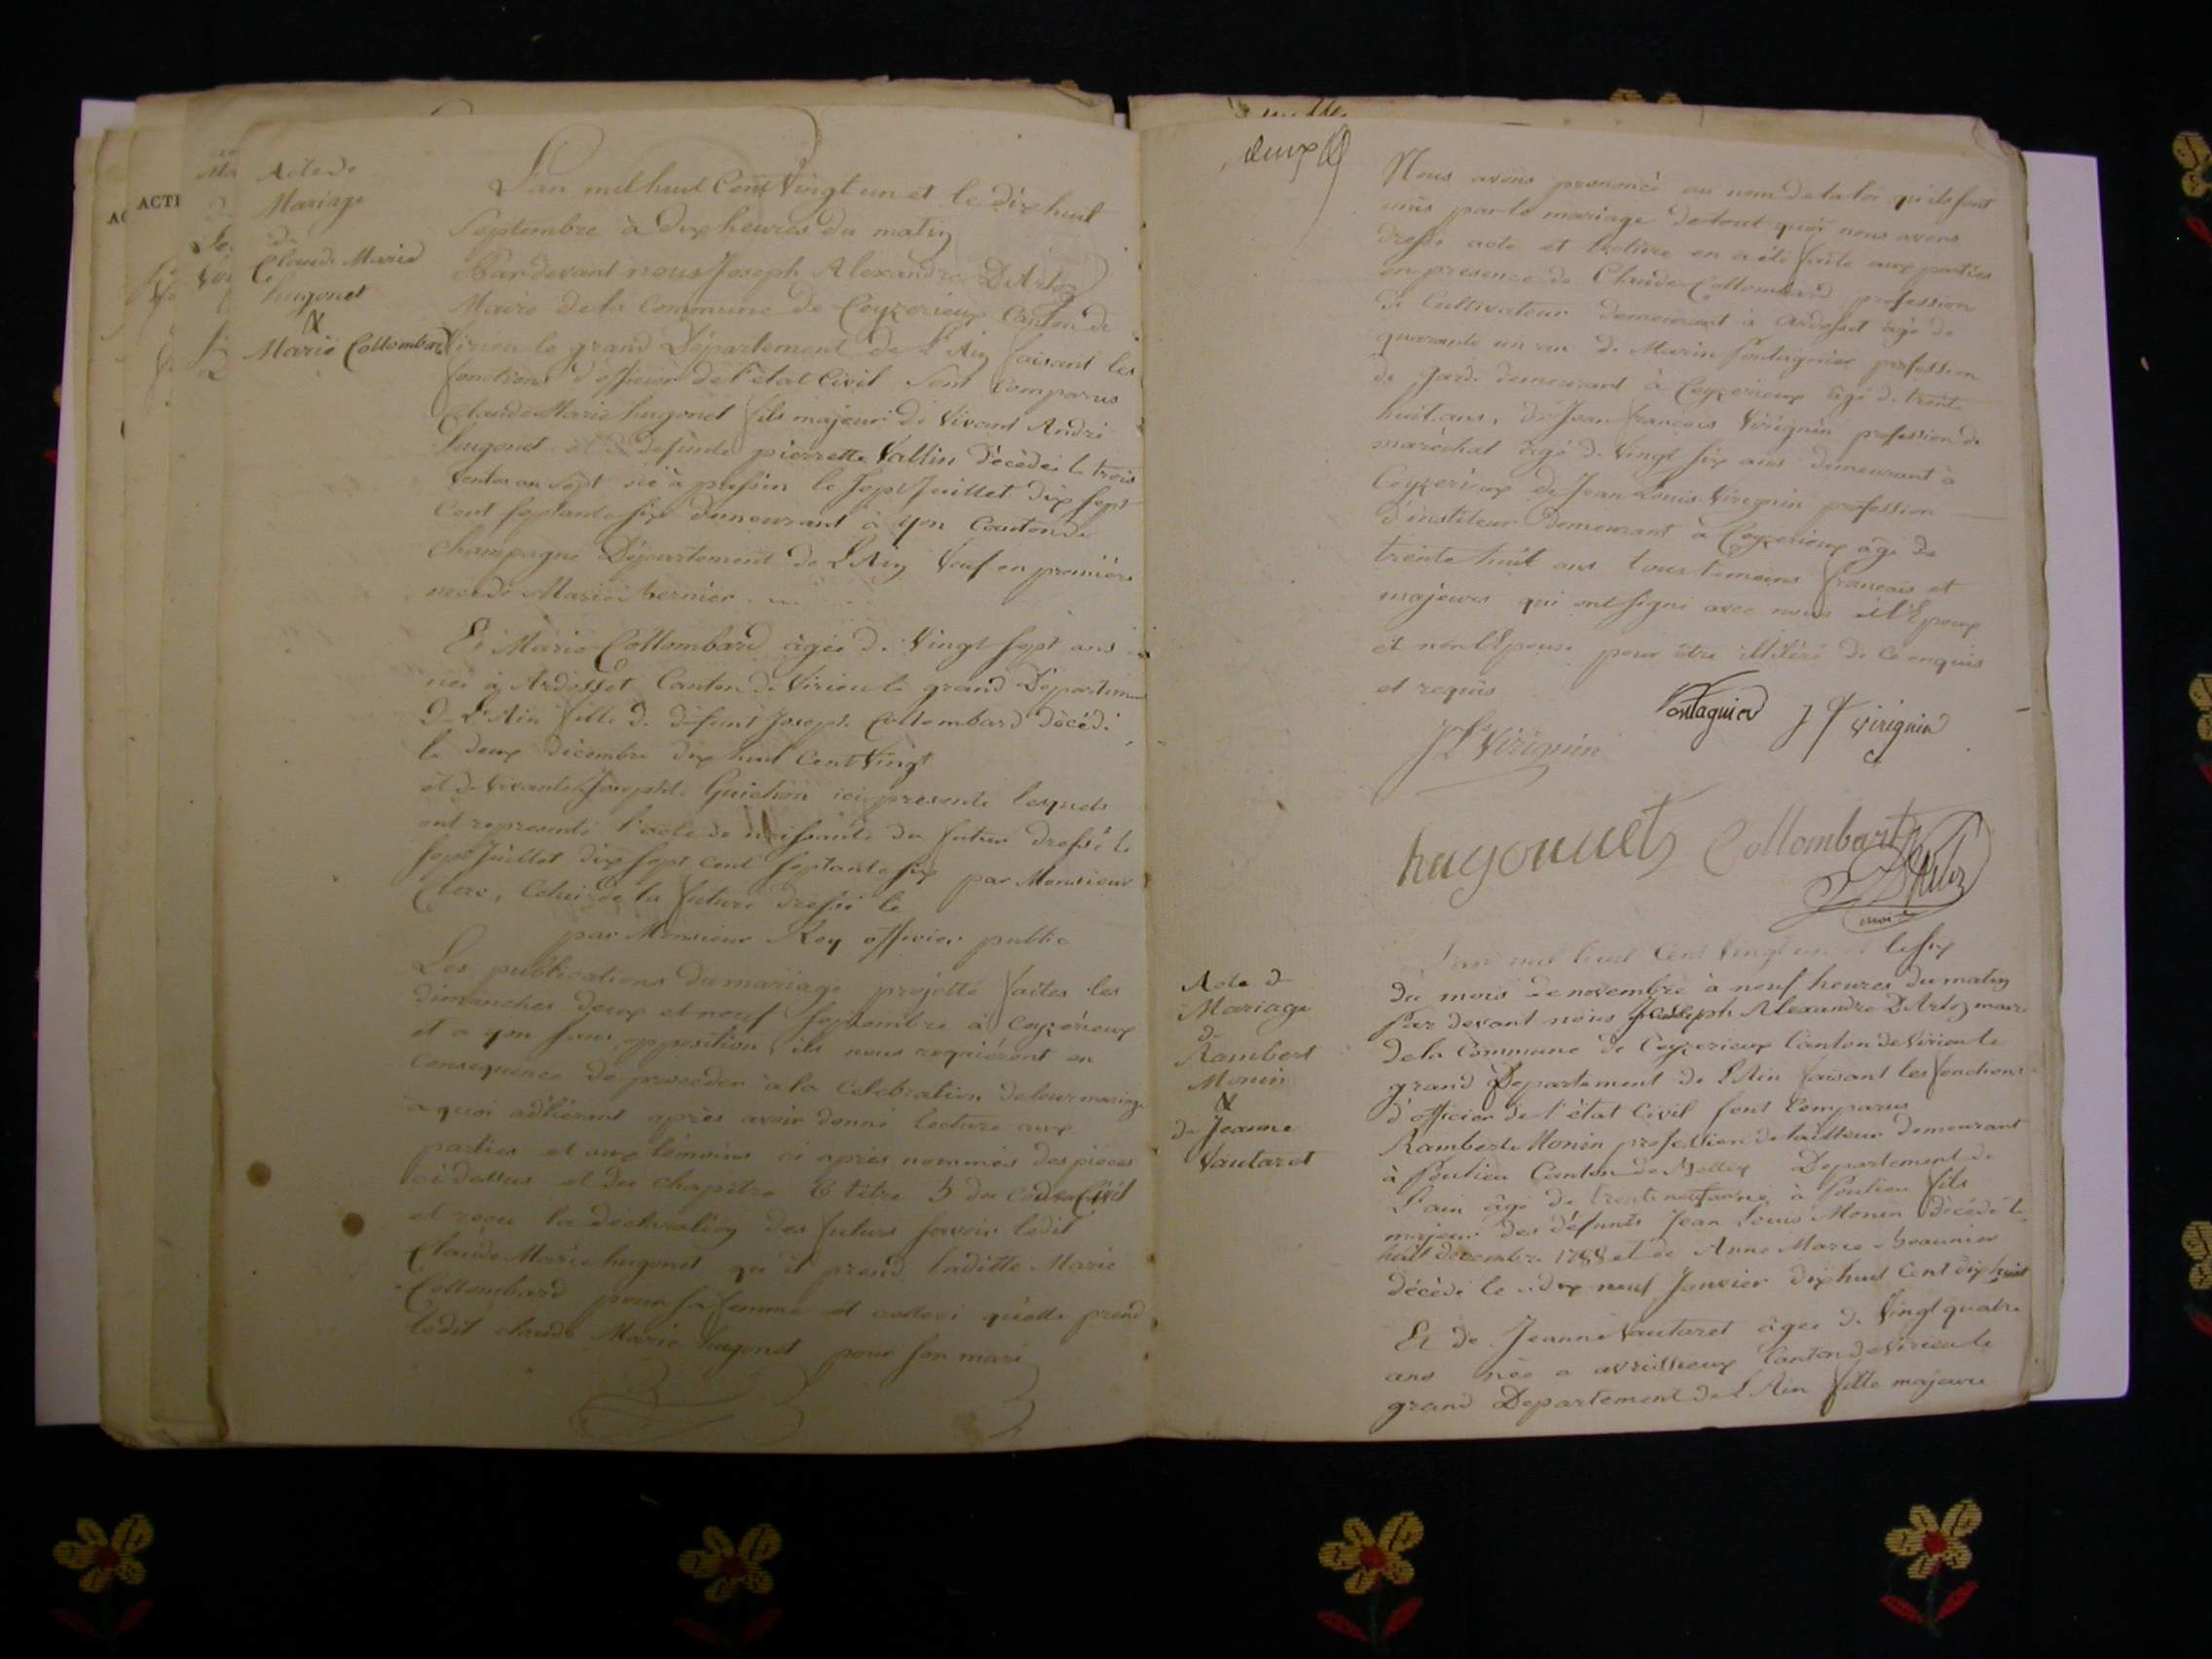 Acte de
Mariage
de
Claude Marie
hugonet
&
Marie Collombard
L'an mil huit Cent Vingt un et le dix huit
Septembre à dix heures du matin
Par devant nous Joseph Alexandre D'Artoz
Maire de la Commune de Ceyzerieux Canton de
Virieu le grand Département de L'Ain faisant les
fonctions d'officier de l'état Civil Sont Comparus
Claude Marie hugonet fils majeur de Vivant André
hugonet et de defunte pierrette Vallin décédée le trois
Ventos an sept né à passin le Sept Juillet dix sept
Cent septante six demeurant à yon Canton de
Champagne Département de L'Ain Veuf en première
noce de Marie Bernier
Et Marie Collombard âgée de Vingt sept ans
née à Ardosset Canton de Virieu le grand Departement
De L'Ain fille de défunt Joseph Collombard décédé
le deux décembre dix huit Cent Vingt
et de Vivante Josephte Guichon ici presente lesquels
ont representé l'acte de naissante du futur dressé le
sept Juillet dix sept cent septante six par Monsieur
Clerc, Celui de la future dressé le
par Monsieur Rey officier public
Les publications du mariage projetté faites les
dimanches deux et neuf septembre à Ceyzérieux
et a yon sans opposition ils nous requièrent en
Consequence de proceder à la Celebration de leur mariage
a quoi adhérent après avoir donné lecture aux
parties et aux témoins ci après nommés des pièces
ci dessus et du chapitre 6 titre 5 du Code Civil
et reçu la déclaration des futurs savoir ledit
Claude Marie hugonet qu'il prend laditte Marie
Collombard pour sa femme et celleci qu'elle prend
ledit claude Marie hugonet pour son mari
ACTI
deux
Nous avons prononcé au nom de la loi qu'ils sont
unis par le mariage de tout quoi nous avons
dressé acte et lecture en a été faite aux parties
en presence de Claude Collombard profession
de Cultivateur demeurant à Ardosset âgé de
quarante un an de Marin Pontagnier profession
de gard. demeurant à Ceyzerieux âgé de trente
huit ans, de Jean françois Virignin profession de
maréchal âgé de Vingt six ans demeurant à
Ceyzerieux de Jean Louis Virignin profession
d'institeur demeurant à Ceyzerieux âgé de
trente huit ans tous temoins français et
majeurs qui ont signé avec nous et l'Epoux
et non l'Epouse pour être illitéré de Ce enquis
et requis
Pontagnier J f virignin
J L Virignin
hugonuet Collombart
D'Artoz
maire
Acte de
Mariage
de
Rambert
Monin
&
de Jeanne
Vautaret
L'an mil huit Cent Vingt un et le six
du mois de novembre à neuf heures du matin
Par devant nous Joseph Alexandre D'Artoz maire
de la Commune de Ceyzerieux Canton de Virieu le
grand Departement de L'Ain faisant les fonctions
d'officier de l'état Civil sont Comparus
Rambert Monin profession de tailleur demeurant
à Poulieu Canton de Departement de
L'ain âgé de trente neuf né à Poulieu fils
majeur des défunts Jean Louis Monin décédé le
huit decembre 1788 et de Anne Marie Beaunier
décédé le dix neuf Janvier dix huit Cent dix huit
Et de Jeanne Vautaret âgée de Vingt quatre
ans née a avrissieux Canton de Virieu le
grand Departement de L'Ain fille majeure